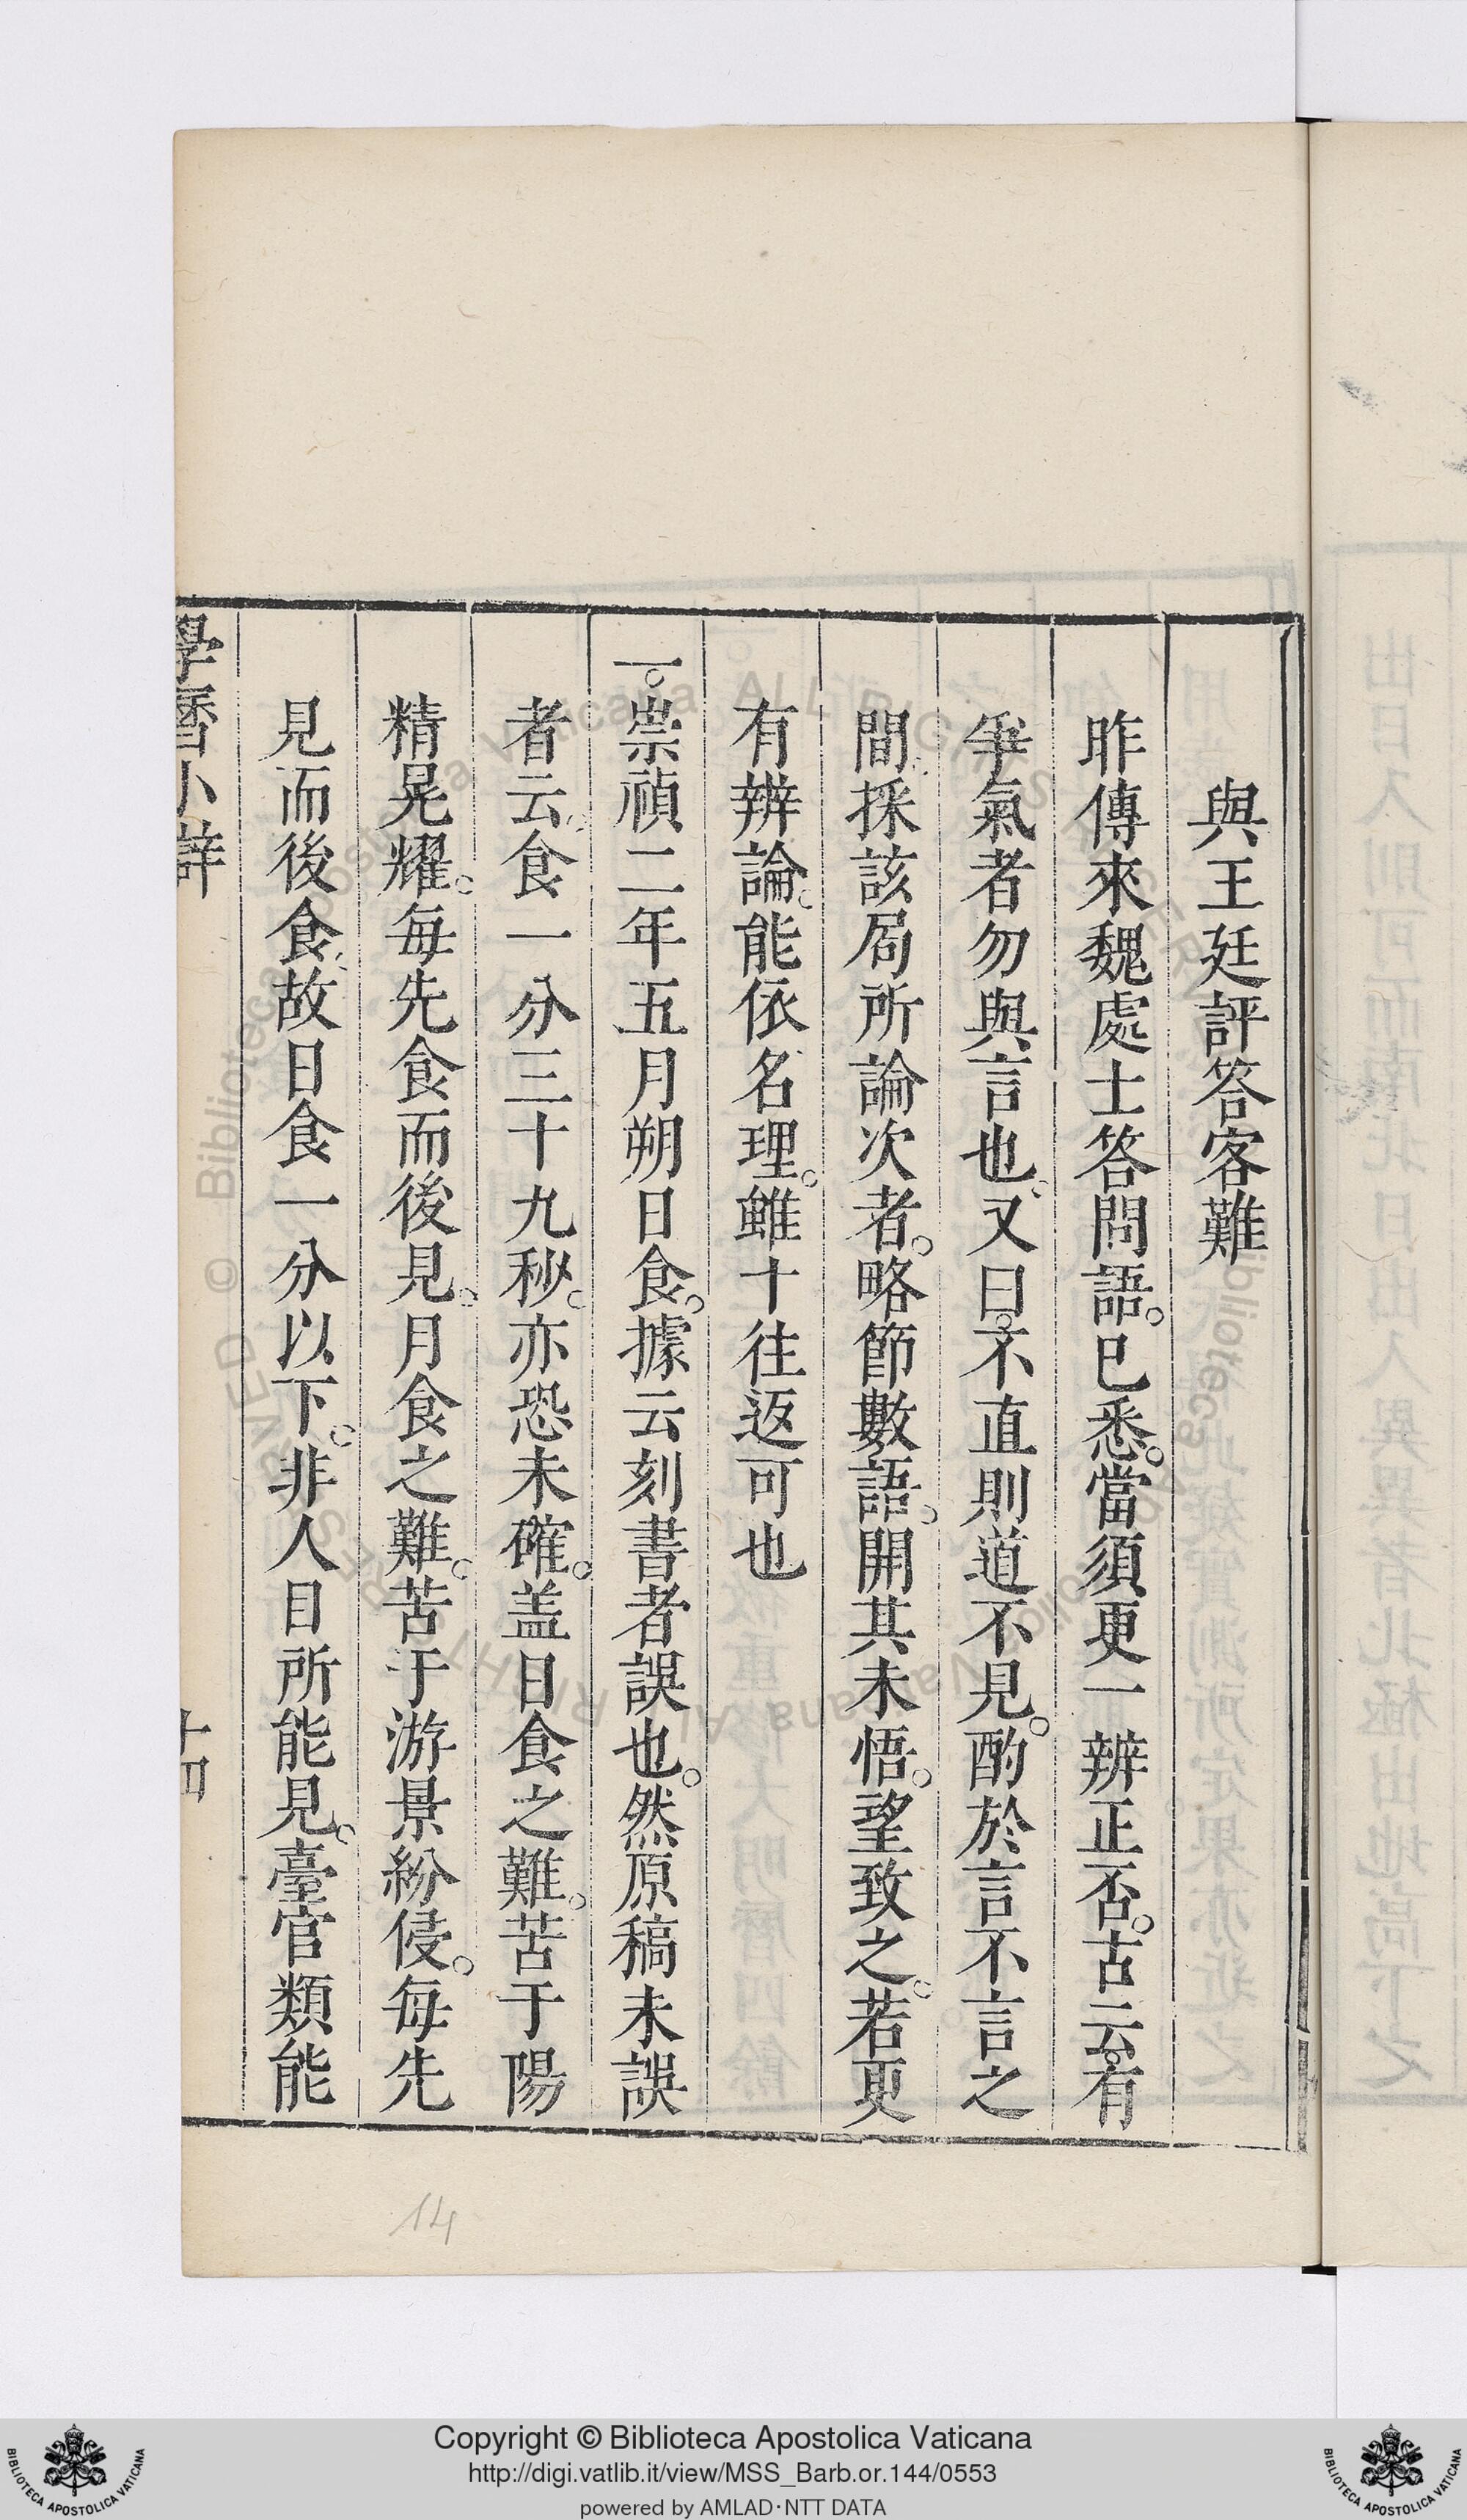 與王廷評答客難
昨傳來魏處士答問語。已悉。當須更一辨正否。古云。有
爭氣者勿與言也。又曰。不直則道不見。酌於言不言之
間。採該局所論次者。略節數語。開其未悟。望致之。若更
有辨論。能依名理。雖十往返可也
一。崇禎二年五月朔日食。據云刻書者誤也。然原稿未誤
者云。食一分三十九秒。亦恐未確。盖日食之難。苦于陽
精晃耀。每先食而後見。月食之難。苦于游景紛侵。每先
見而後食。故日食一分以下。非人目所能見。臺官類能
學曆小辯
十四
14
Copyright © Biblioteca Apostolica Vaticana
http://digi.vatlib.it/view/MSS_Barb.or.144/0553
powered by AMLAD·NTT DATA
BIBLIOTECA APOSTOLICA VATICANA
BIBLIOTECA APOSTOLICA VATICANA